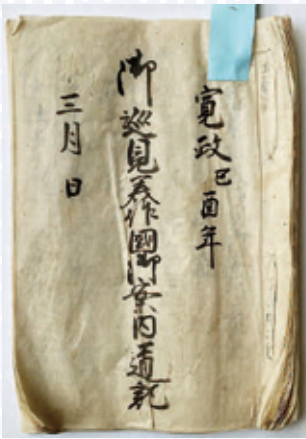 寛政己酉年
御巡見美作國御案内道記
三月日